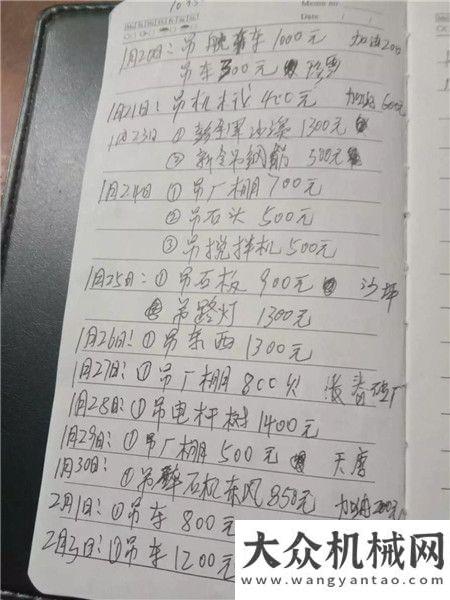 Memo no
Date
1月20日: 吊 车 1000元 加油200
吊车300元
1月21日: 吊机械 400元 加油600元
1月23日 ① 1300元
② 新 吊钢筋 500元
1月24日 ① 吊厂棚 700元
② 吊石头 500元
③ 吊搅拌机 500元
1月25日: ① 吊石板 900元 沙坪
吊路灯 1300元
1月26日: ① 吊东西 1300元
1月27日: ① 吊厂棚 800 厂
1月28日: ① 吊电杆树 1400元
1月29日: ① 吊厂棚 500元 天唐
1月30日: ① 吊碎石机东风 850元
2月1日: ① 吊车 800元 加油200元
2月3日: ① 吊车 1200元
大众机械网
www.wangyangtao.com